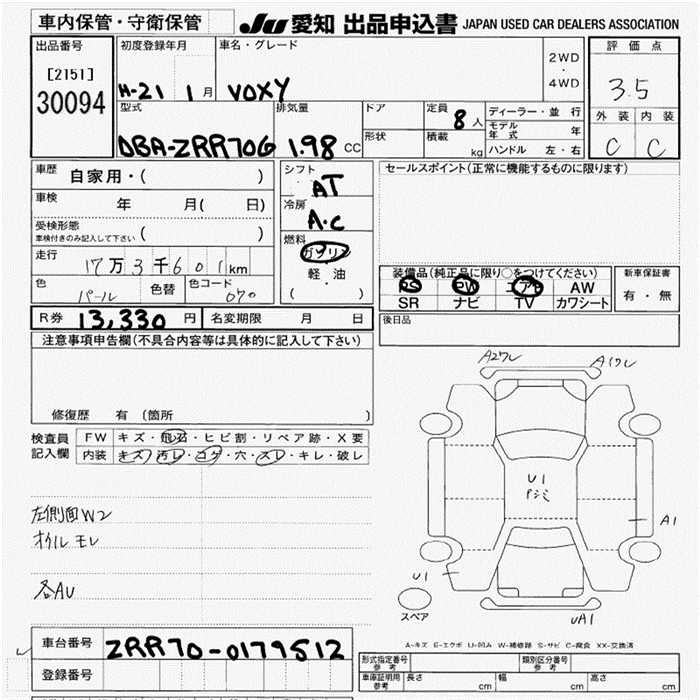 車内保管・守衛保管
JU 愛知 出品申込書 JAPAN USED CAR DEALERS ASSOCIATION
出品番号
[2151]
30094
初度登録年月
H-21 1月
車名・グレード
VOXY
2WD
・
4WD
評価点
3.5
外装 内装
C C
型式
DBA-ZRR70G
排気量
1.98 CC
ドア
形状
定員
8人
積載
kg
ディーラー・並行
モデル年式 年
ハンドル 左・右
車歴
自家用・( )
車検
年 月( 日)
受検形態
車検付きのみ記入して下さい ( )
走行
17万3千601km
色
パール
色替
色コード
070
シフト
AT
冷房
A・C
燃料
ガソリン
・
軽油
( )
セールスポイント(正常に機能するものに限ります)
装備品(純正品に限り○をつけてください)
PS PW エアB AW
SR ナビ TV カワシート
新車保証書
有・無
R券 13,330 円
名変期限 月 日
後日品
注意事項申告欄(不具合内容等は具体的に記入して下さい)
修復歴 有 (箇所 )
検査員
記入欄
FW キズ・飛石・ヒビ割・リペア跡・X要
内装 キズ・汚レ・コゲ・穴・スレ・キレ・破レ
左側面W2
オイルモレ
各AU
A2ワレ
A1ワレ
U1
A1
U1
UA1
スペア
A-キズ E-エクボ U-凹み W-補修跡 S-サビ C-腐食 XX-交換済
車台番号
ZRR70-0179512
登録番号
形式指定番号
参考
類別区分番号
参考
車庫証明用
参考
長さ cm 幅 cm 高さ cm